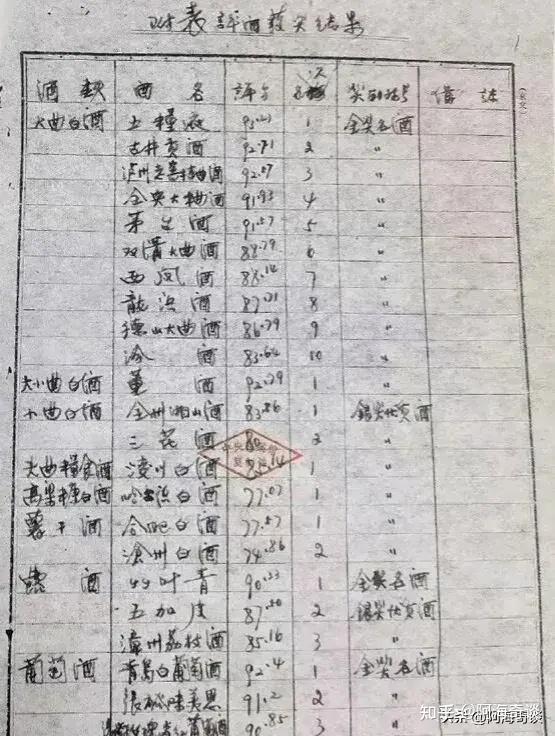 附表 评酒获奖结果
酒类 酒名 评分 名次 奖别 备註
大曲白酒 五粮液 93.21 1 金奖名酒
古井贡酒 92.71 2 〃
泸州 酒 92.07 3 〃
全兴大粬酒 91.93 4 〃
茅台酒 91.57 5 〃
双溝大曲酒 88.79 6 〃
西凤酒 88.14 7 〃
龍滨酒 87.21 8 〃
德山大曲酒 86.79 9 〃
汾酒 83.64 10 〃
大小曲白酒 董酒 92.79 1 〃
小曲白酒 全州湘山酒 83.86 1 銀奖优质酒
三花酒 2 〃
夫曲糧食酒 凌川白酒 .14 1 〃
高梁糠白酒 哈尔滨白酒 77.07 1 〃
薯干酒 合肥白酒 77.57 1 〃
滄州白酒 74.86 2 〃
露酒 竹叶青 90.33 1 金奖名酒
五加皮 87.50 2 銀奖优质酒
漳州荔枝酒 85.16 3 〃
葡萄酒 青岛白葡萄酒 92.4 1 金奖名酒
張 美思 91.2 2 〃
葡萄酒 90.85 3 〃
知乎 @阿海奇谈
头条 @阿海奇谈